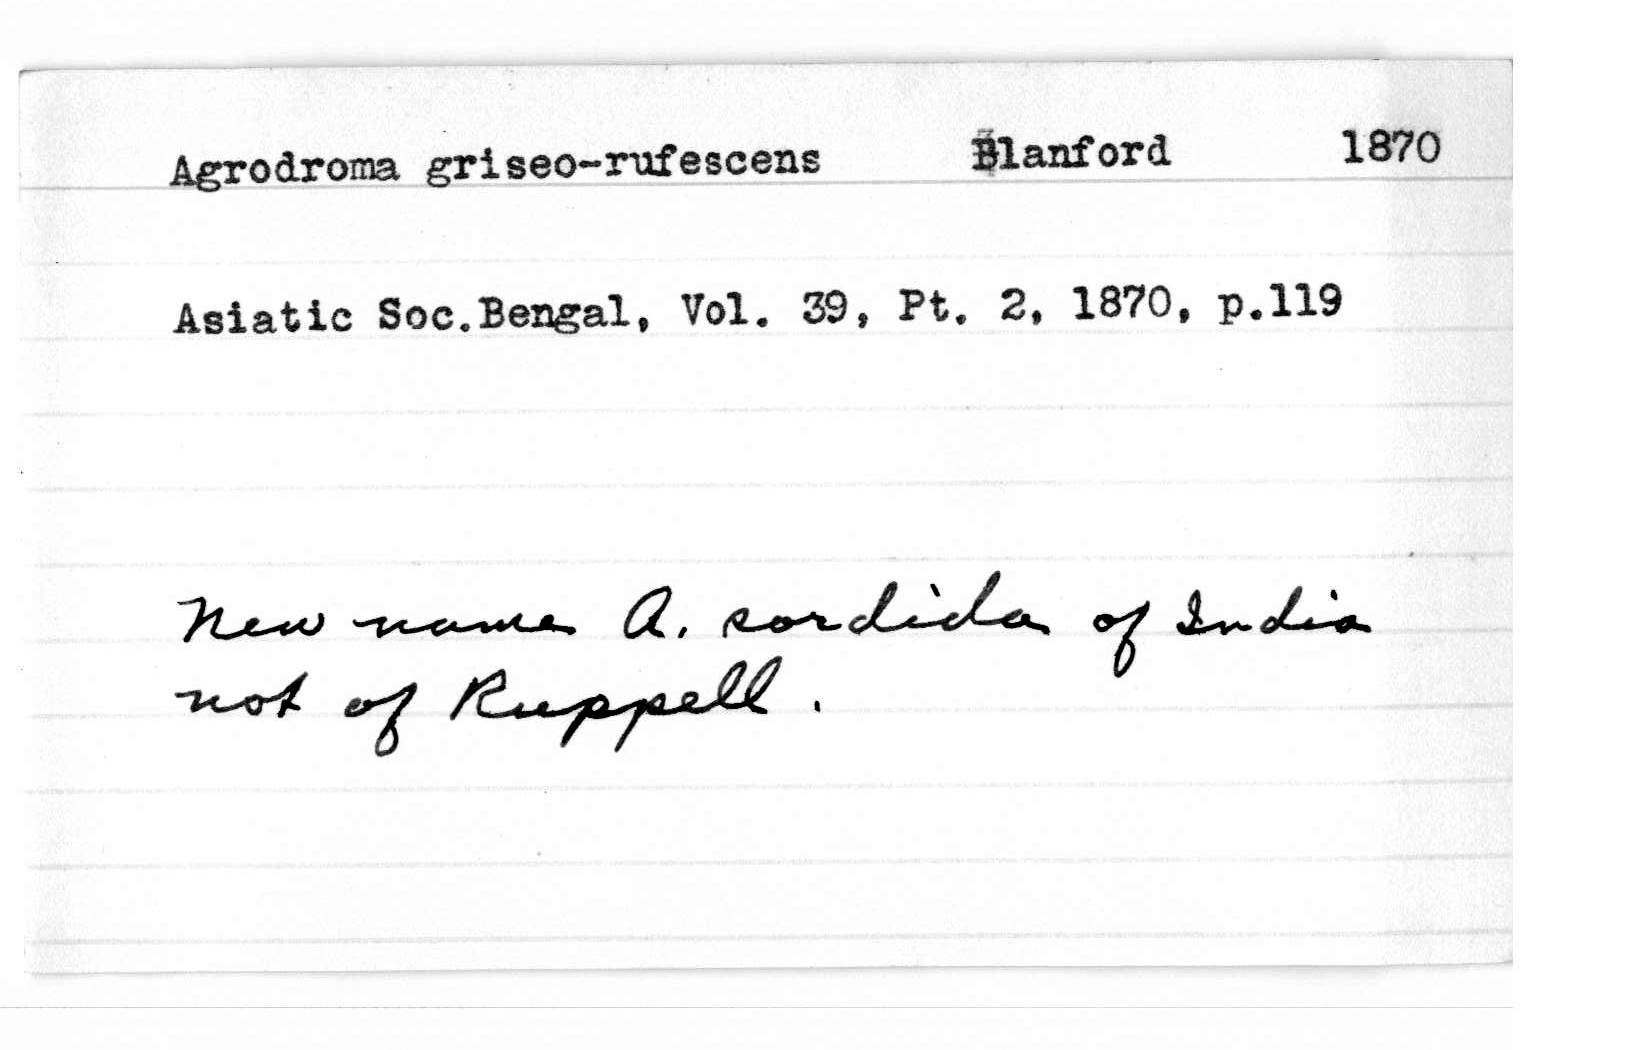 Agrodroma griseo-rufescens Blanford 1870
Asiatic Soc.Bengal, Vol. 39, Pt. 2, 1870, p.119
New name A. sordida of India
not of Ruppell.